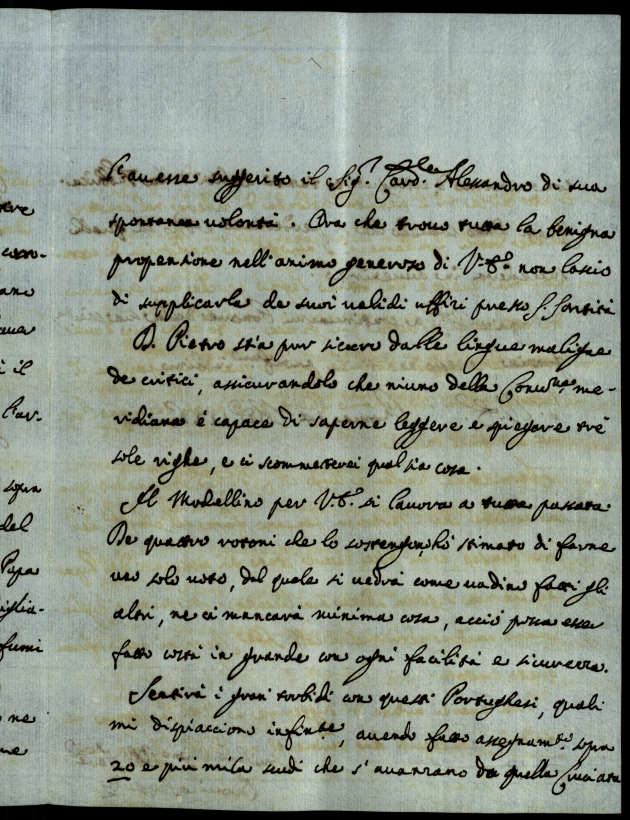 l'avesse suggerito il Sig.r Card.le Alessandro di sua
spontanea volontà. Ora che trovo tutta la benigna
propensione nell'animo generoso di V.E. non lascio
di supplicarla de suoi validi uffizi presso S. Santità
D. Pietro stia pur sicuro dalle lingue maligne
de critici, assicurandolo che niuno della me-
ridiana è capace di saperne leggere e spiegare trè
sole righe, e ci scommetterei qual sia cosa.
Il Modellino per V.E. si lavora a tutta passata
De quattro rotoni che lo sostengon, hò stimato di farne
uno solo voto, dal quale si vedrà come vadino fatti gli
altri, ne ci mancarà minima cosa, acciò possa esser
fatto costì in grande con ogni facilità e sicurezza.
Sentirà i gran torbidi con questi Portughesi, quali
mi dispiacciono infinite, avendo fatto assegnam.to sopra
20 e più mila scudi che s'avanzano da quella Cruciata
tere
ano
i il
l'av-
sopra
del
Papa
iglia-
fumi
ne